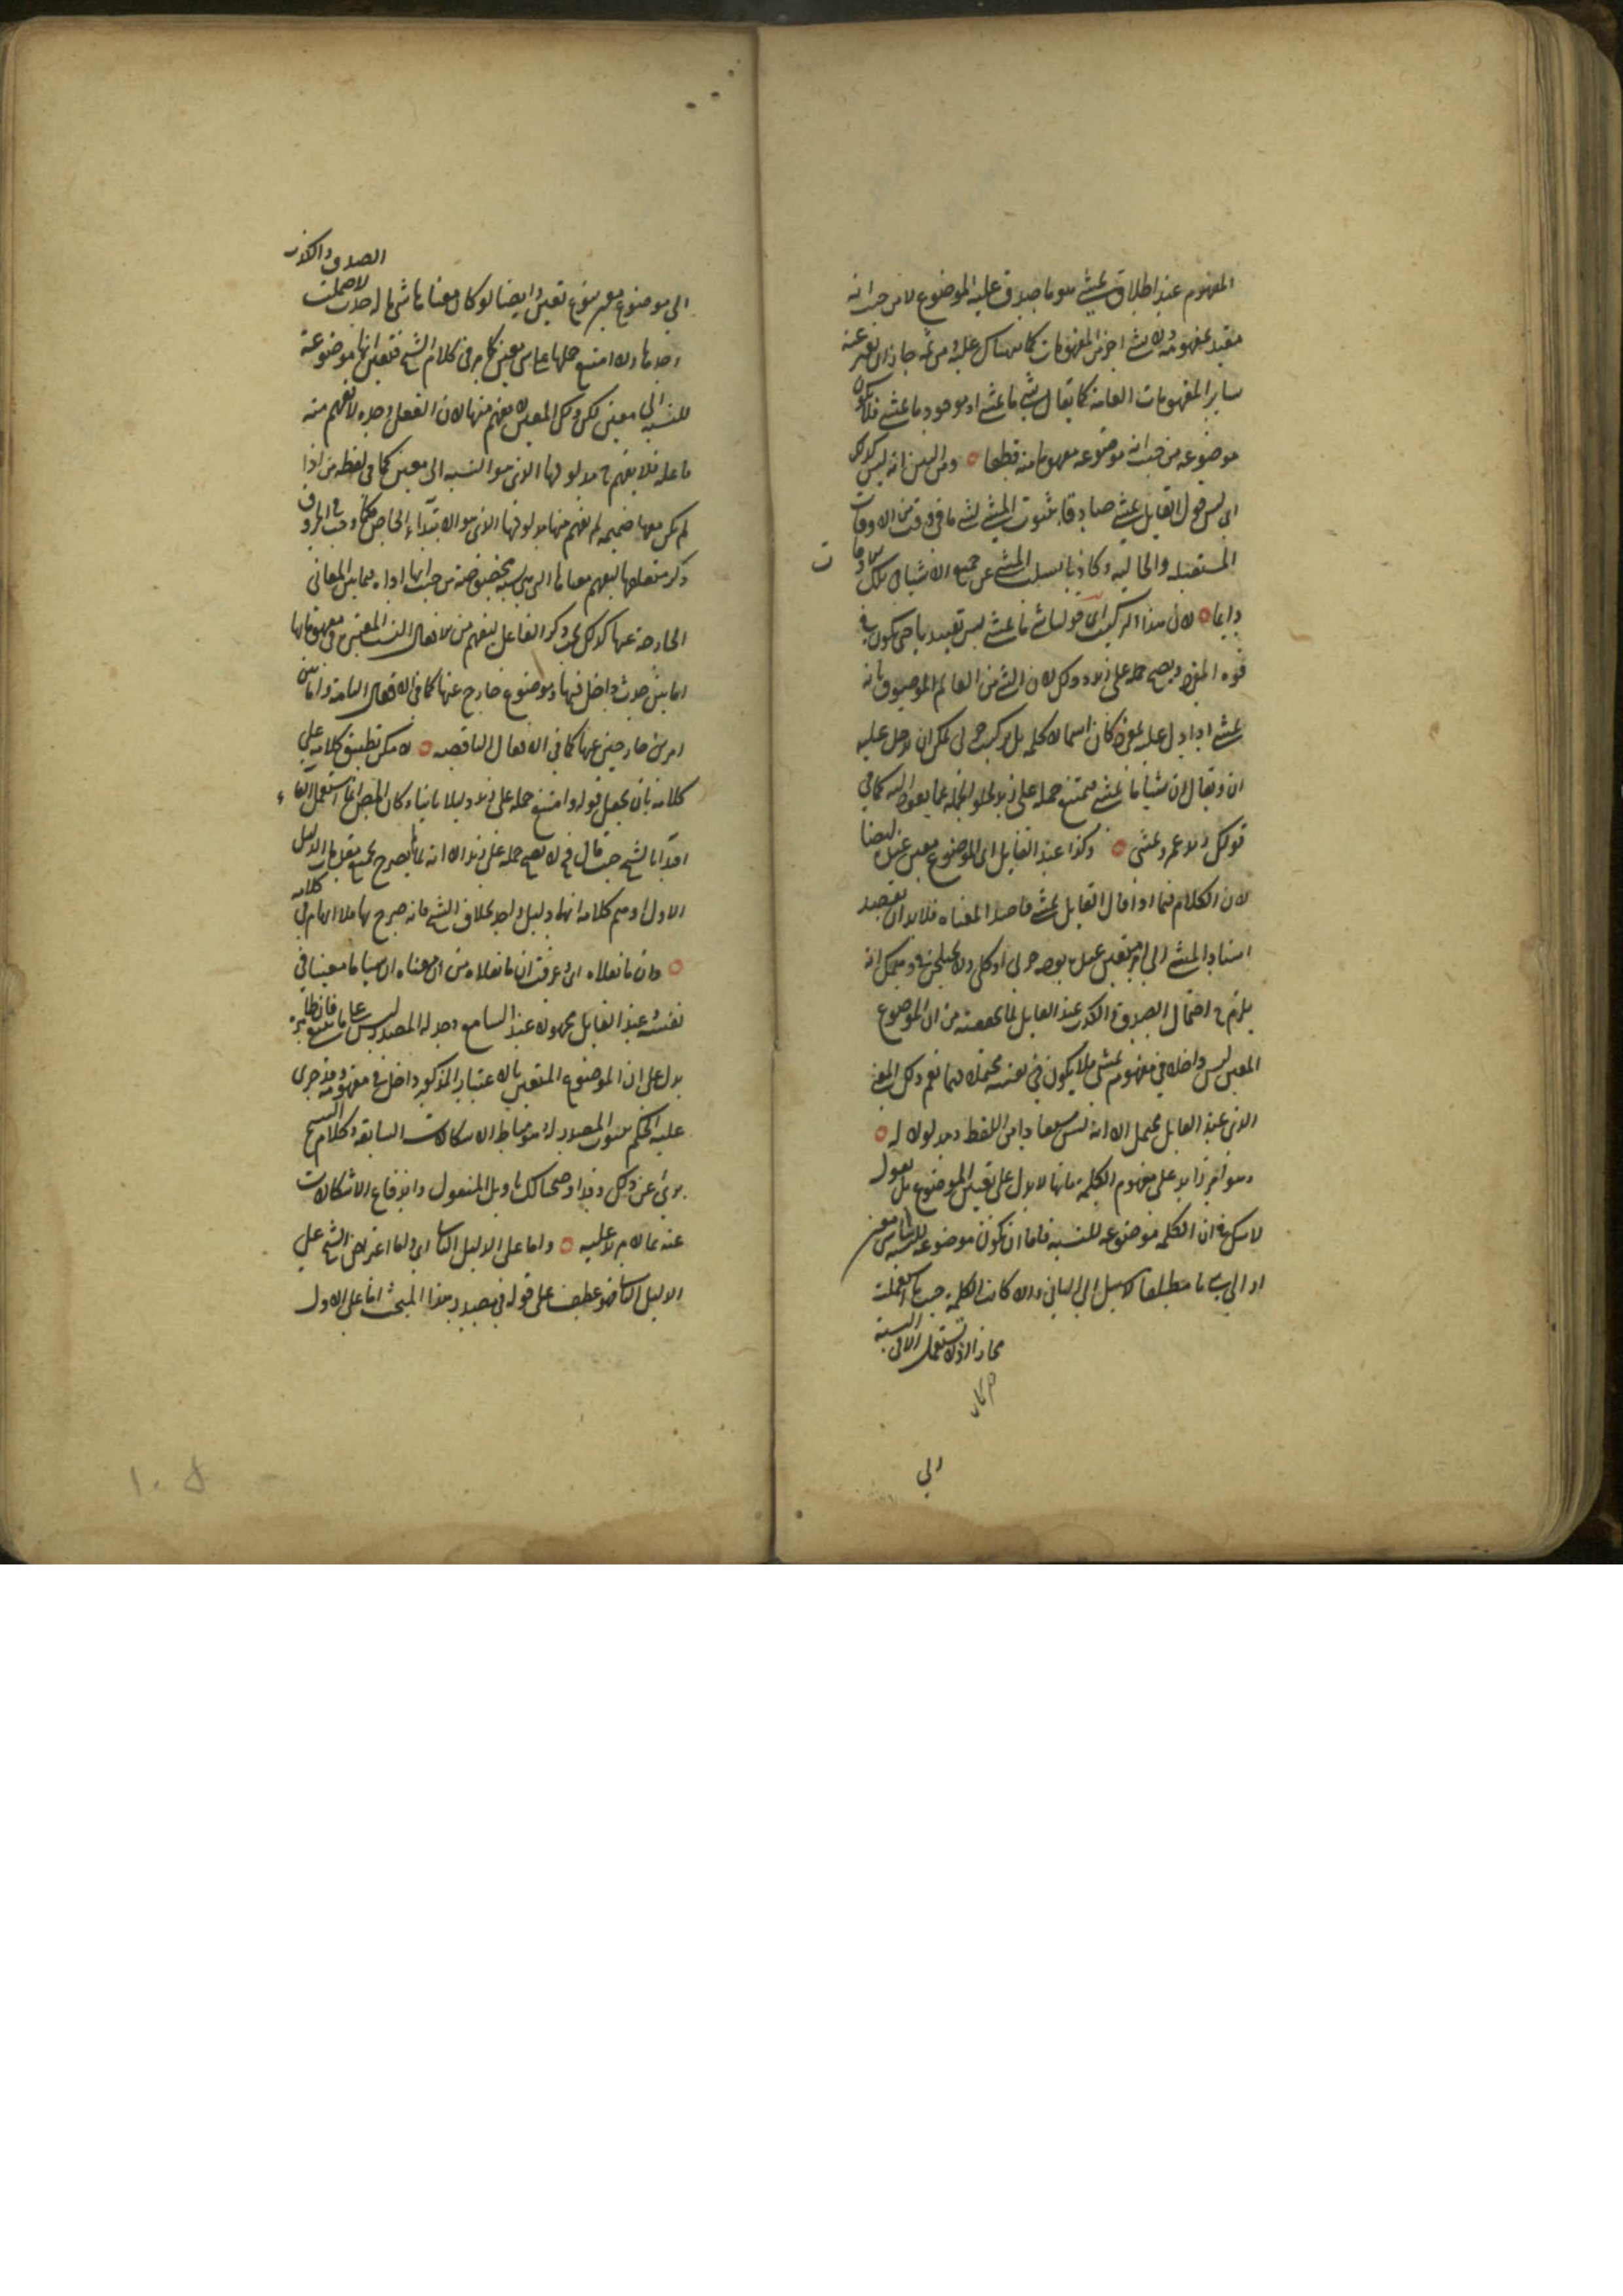 المفهوم عند اطلاق يمشي هو ما صدق عليه الموضوع لا من حيث انه
مقيد بمفهومه ولا بشئ اخر من المفهومات كما هناك عليه ومن ثمه جاز ان يعبر عنه
سائر المفهومات العامة كما يقال شئ ما يمشي او موجود ما يمشي فلا يكون
موضوعه من حيث انه موضوعه مفهوما منه قطعا ومن البين انه ليس كذلك
اي ليس قول القايل يمشي صادقا بثبوت المشي لشئ ما في وقت من الاوقات
المستقبلة والحالية وكاذبا بسلب المشي عن جميع الاشياء
دايما لان هذا التركيب اي قولنا شئ ما يمشي ليس تقييديا حتى يكون في
قوة المفرد ويصح حمله على زيد وذلك لان الشئ من العالم الموصوف بانه
يمشي اذا دل عليه بمفرد كان اسما لا كلمة بل مركب خبري يمكن ان يدخل عليه
ان ويقال ان شيئا ما يمشي فيمتنع حمله على زيد لخلو الجملة عما يعود اليه كما في
قولك زيد عمرو يمشي وكذا عند القايل اي الموضوع معين عنده ايضا
لان الكلام فيما اذا قال القايل يمشي قاصدا لمعناه فلا بد ان يقصد
اسناد المشي الى امر متعين عنده بوجه جزئي او كلي
يلزم ح احتمال الصدق والكذب عند القايل لما تحققته من ان الموضوع
المعين ليس داخلا في مفهوم يمشي فلا يكون في نفسه محتملا لهما نعم ذلك المعنى
الذي عند القايل محتمل الا انه ليس مستفادا من اللفظ ومدلولا له
وهو امر زايد على مفهوم الكلمة فانها لا تدل على تعيين الموضوع بل نقول
لا شك في ان الكلمة موضوعة للنسبة فاما ان تكون موضوعة للنسبة الى شئ معين
او الى شئ ما مطلقا لا سبيل الى الثاني والا كانت الكلمة حيث استعملت
مجازا اذ لا تستعمل الا في النسبة
الى
الصدق والكذب
الى موضوع معين بنوع تعين وايضا لو كان معناها شئ ما له حدث لاحتملت
وحدها ولا امتنع حملها على معين كما مر في كلام الشيخ فتعين انها موضوعة
للنسبة الى معين لكن ذلك المعين لا يفهم منها لان الفعل وحده لا يفهم منه
فاعله فلا يفهم ح مدلولها الذي هو النسبة الى معين كما في لفظة من اذا
لم يكن معها ضميمة لم يفهم منها مدلولها الذي هو الابتداء الخاص فكما وجب في الحروف
ذكر متعلقها ليفهم معناها التي هي نسبة مخصوصة من حيث انها اداة بما بين المعاني
الخارجة عنها كذلك يجب ذكر الفاعل ليفهم من الافعال النسب المعتبرة في مفهوماتها
اما بين حدث داخل فيها وموضوع خارج عنها كما في الافعال التامة واما بين
امرين خارجين عنها كما في الافعال الناقصة لا يمكن تطبيق كلامه على
كلامه بان يجعل قوله وامتنع حمله على زيد دليلا ثانيا وكان المص انما استعمل الفاء
اقتداء بالشيخ حيث قال فح لا يصح حمله على زيد الا انه لما لم يصرح بجميع مقدمات الدليل
الاول اوهم كلامه انها دليل واحد بخلاف الشيخ فانه صرح بها فلا ابهام في كلامه
وان ما نقلناه اي عرفت ان ما نقلناه من ان معناه ان شيئا ما معينا في
نفسه وعند القايل مجهولا عند السامع وجد له المصدر
يدل على ان الموضوع المتعين بالاعتبار المذكور داخل في مفهومه وقد جرى
عليه الحكم بثبوت المصدر له وهو مناط الاشكالات السابقة وكلام الشيخ
برئ عن ذلك وقد اوضحنا لك تاويل المنقول واندفاع الاشكالات
عنه بما لا مزيد عليه واما على الدليل الثاني اي واما اعتراض الشيخ على
الدليل الثاني فهو عطف على قوله في صدر هذا المبحث اما على الاول